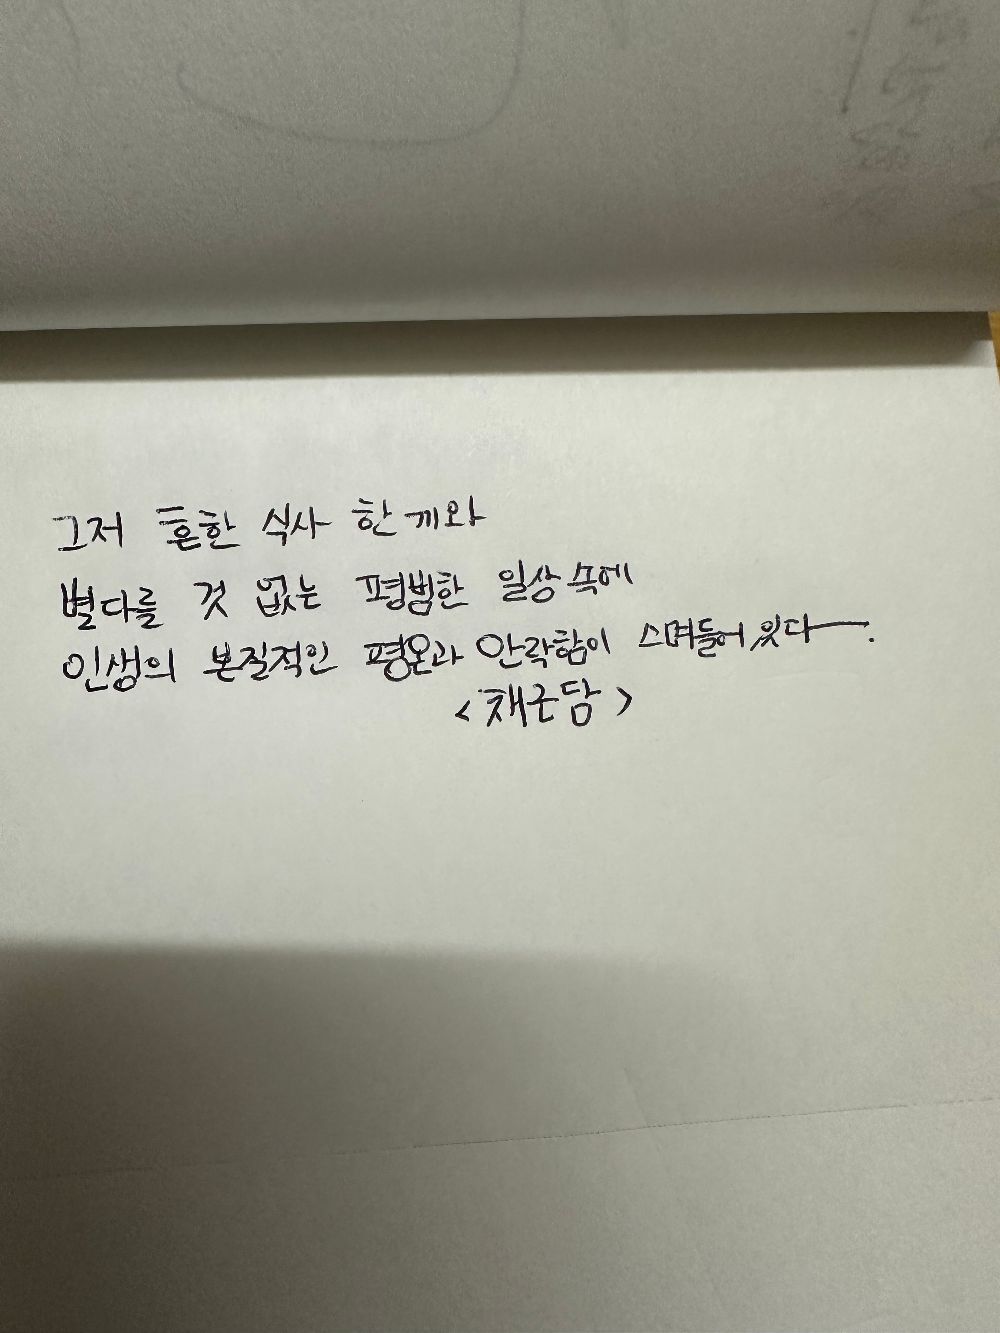 그저 흔한 식사 한 끼와
별다를 것 없는 평범한 일상 속에
인생의 본질적인 평온과 안락함이 스며들어 있다.
<채근담>